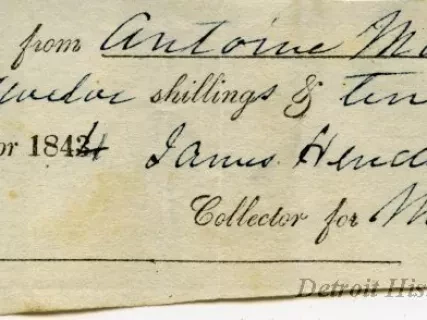 from Antoine M
shillings & ten
or 1844
James Hend
Collector for M
Detroit His